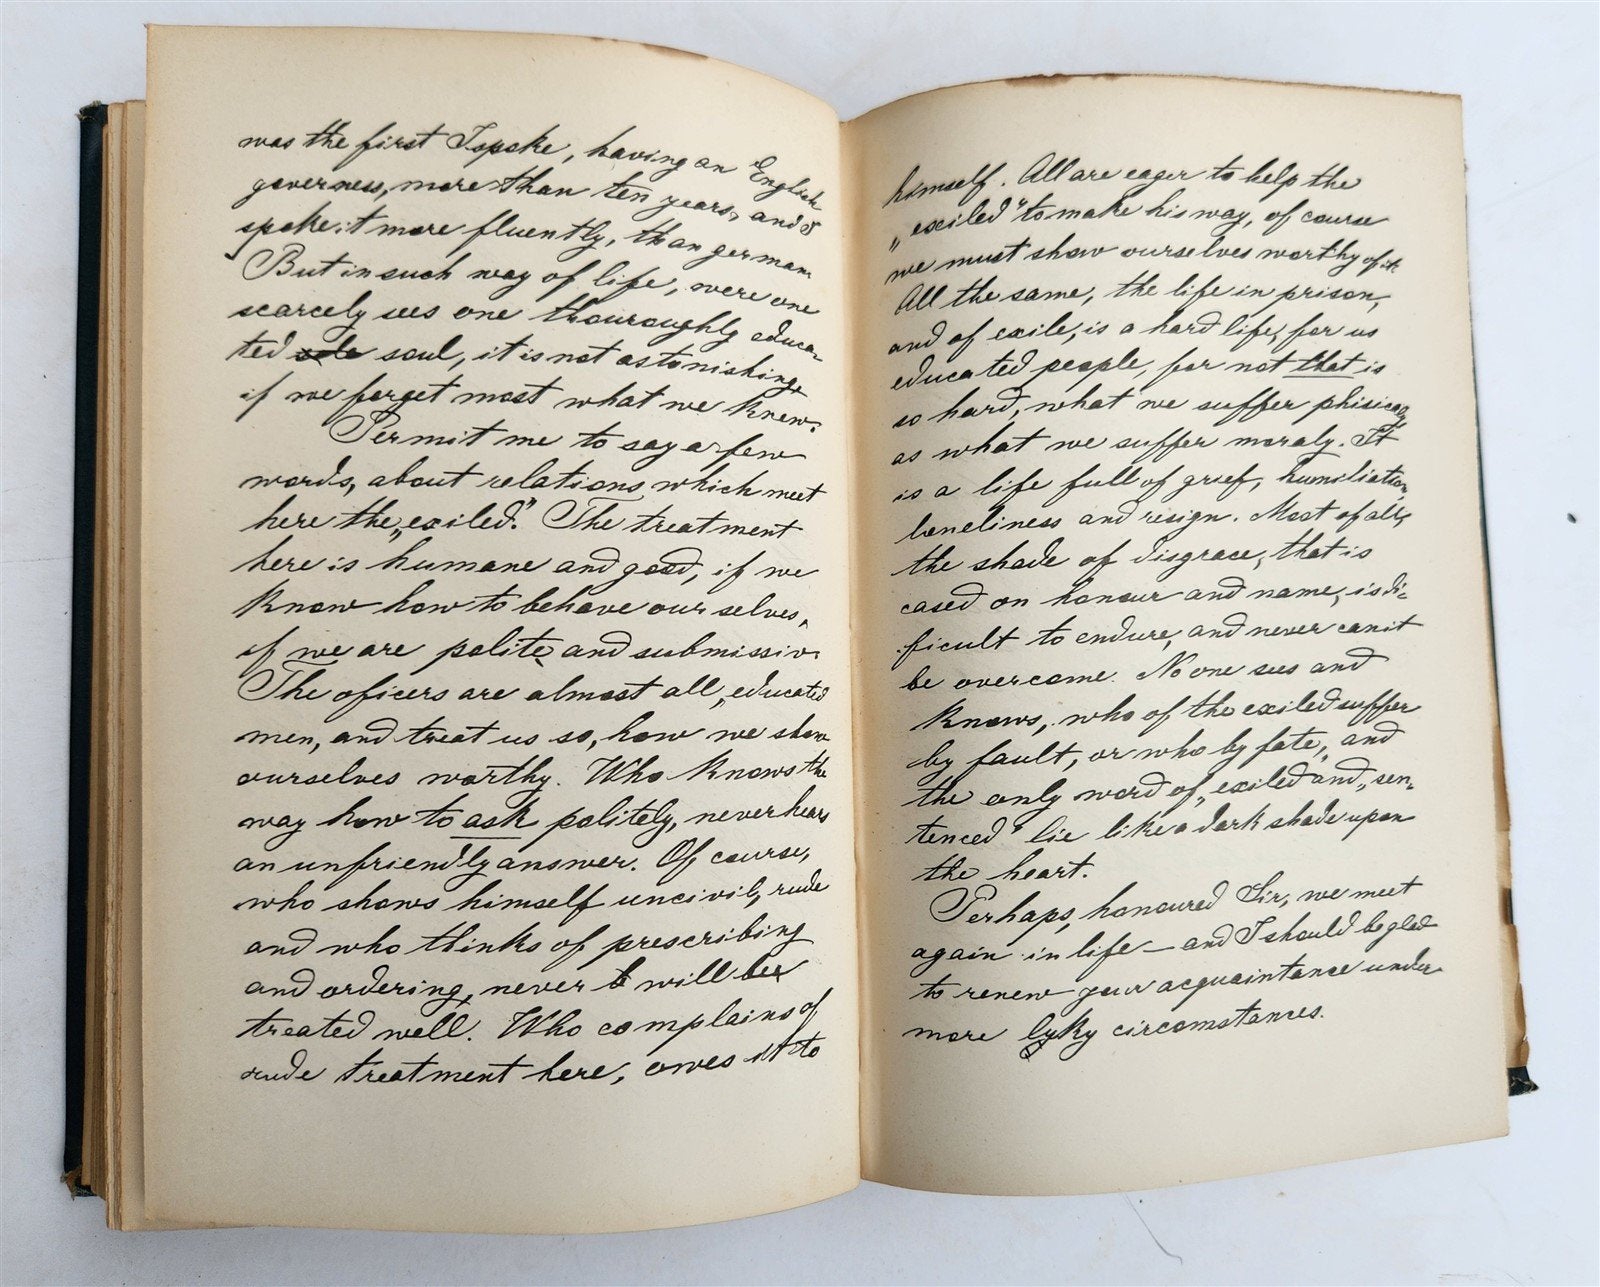 was the first I spoke, having an English
governess, more than ten years, and I
spoke it more fluently, than german
But in such way of life, were one
scarcely sees one thouroughly educa-
ted soul, it is not astonishing,
if we forget most what we knew.
Permit me to say a few
words, about relations, which meet
here the „exiled". The treatment
here is humane and good, if we
know how to behave our selves,
if we are polite, and submissiv.
The oficers are almost all, educated
men, and treat us so, how we show
ourselves worthy. Who knows the
way how to ask politely, never hears
an unfriendly answer. Of course,
who shows himself uncivil, rude
and who thinks of prescribing
and ordering, never b will bee
treated well. Who complains of
rude treatment here, owes it to
himself. All are eager to help the
„exiled" to make his way, of course
we must show ourselves worthy of it.
All the same, the life in prison,
and of exile, is a hard life, for us
educated people, for not that is
so hard, what we suffer phisicaly
as what we suffer moraly. It
is a life full of grief, humiliation,
loneliness and resign. Most of all,
the shade of disgrace, that is
cased on honour and name, is di-
ficult to endure, and never can it
be overcome. No one sees and
knows, who of the exiled suffer
by fault, or who by fate, and
the only word of „exiled" and „sen-
tenced" lie like a dark shade upon
the heart.
Perhaps, honoured Sir, we meet
again in life – and I should be glad
to renew your acquaintance under
more lyky circomstances.